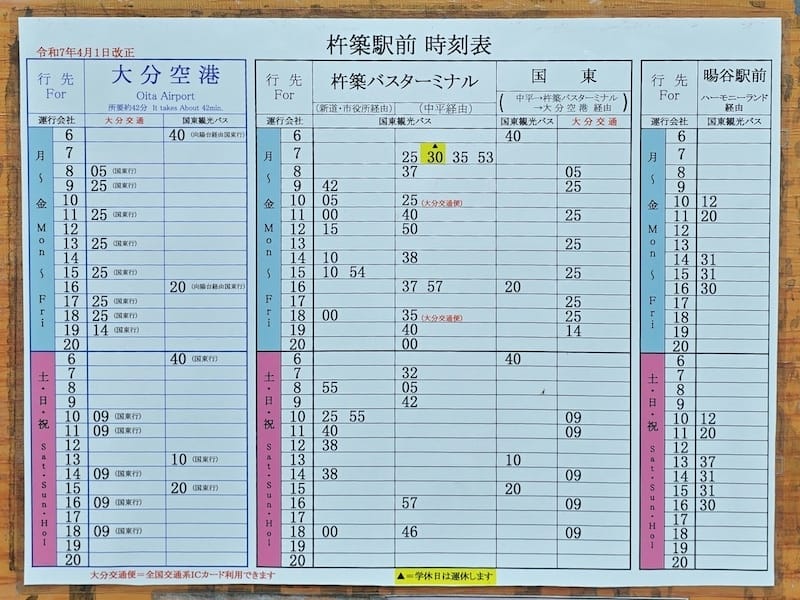 杵築駅前 時刻表
令和7年4月1日改正
行先 For 大分空港 Oita Airport 所要約42分 It takes About 42min.
運行会社 大分交通 国東観光バス
月～金 Mon～Fri
6 40 (向陽台経由国東行)
7
8 05 (国東行)
9 25 (国東行)
10
11 25 (国東行)
12
13 25 (国東行)
14
15 25 (国東行)
16 20 (向陽台経由国東行)
17 25 (国東行)
18 25 (国東行)
19 14 (国東行)
20
土・日・祝 Sat・Sun・Hol
6 40 (国東行)
7
8
9
10 09 (国東行)
11 09 (国東行)
12
13 10 (国東行)
14 09 (国東行)
15 20 (国東行)
16 09 (国東行)
17
18 09 (国東行)
19
20
大分交通便＝全国交通系ICカード利用できます
行先 For 杵築バスターミナル 国東
(新道・市役所経由) (中平経由) (中平→杵築バスターミナル →大分空港 経由)
運行会社 国東観光バス 国東観光バス 大分交通
月～金 Mon～Fri
6 40
7 25 ▲30 35 53
8 37 05
9 42 25
10 05 25 (大分交通便)
11 00 40 25
12 15 50
13 25
14 10 38
15 10 54 25
16 37 57 20
17 25
18 00 35 (大分交通便) 25
19 40 14
20 00
土・日・祝 Sat・Sun・Hol
6 40
7 32
8 55 05
9 42
10 25 55 09
11 40 09
12 38
13 10
14 38 09
15 20
16 57 09
17
18 00 46 09
19
20
▲＝学休日は運休します
行先 For 暘谷駅前 ハーモニーランド 経由
運行会社 国東観光バス
月～金 Mon～Fri
6
7
8
9
10 12
11 20
12
13
14 31
15 31
16 30
17
18
19
20
土・日・祝 Sat・Sun・Hol
6
7
8
9
10 12
11 20
12
13 37
14 31
15 31
16 30
17
18
19
20